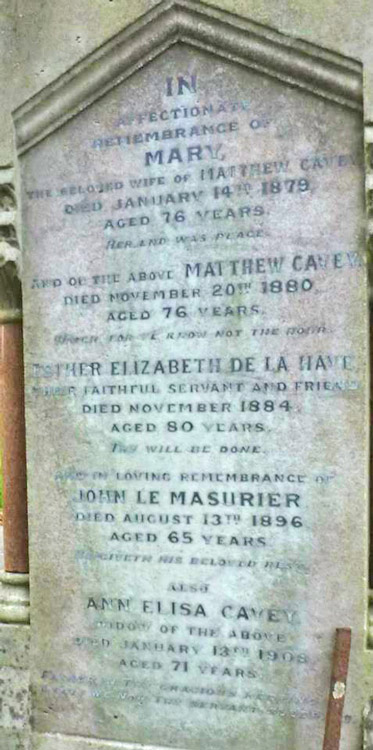 IN
AFFECTIONATE
REMEMBRANCE OF
MARY,
THE BELOVED WIFE OF MATTHEW CAVEY
DIED JANUARY 14TH 1879,
AGED 76 YEARS.
HER END WAS PEACE.
AND OF THE ABOVE MATTHEW CAVEY,
DIED NOVEMBER 20TH 1880
AGED 76 YEARS.
WATCH FOR YE KNOW NOT THE HOUR.
ESTHER ELIZABETH DE LA HAYE
THEIR FAITHFUL SERVANT AND FRIEND
DIED NOVEMBER 1884
AGED 80 YEARS.
THY WILL BE DONE.
AND IN LOVING REMEMBRANCE OF
JOHN LE MASURIER
DIED AUGUST 13TH 1896
AGED 65 YEARS
HE GIVETH HIS BELOVED REST
ALSO
ANN ELISA CAVEY
WIDOW OF THE ABOVE
DIED JANUARY 13TH 1908
AGED 71 YEARS.
FATHER IN THY GRACIOUS KEEPING
LEAVE WE NOW THY SERVANT SLEEPING